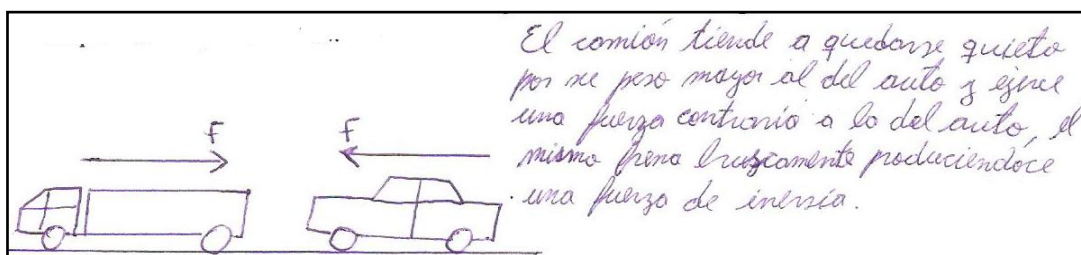 El camión tiende a quedarse quieto
por su peso mayor al del auto y ejerce
una fuerza contraria a la del auto, el
mismo frena bruscamente produciendóce
una fuerza de inersia.
F
F